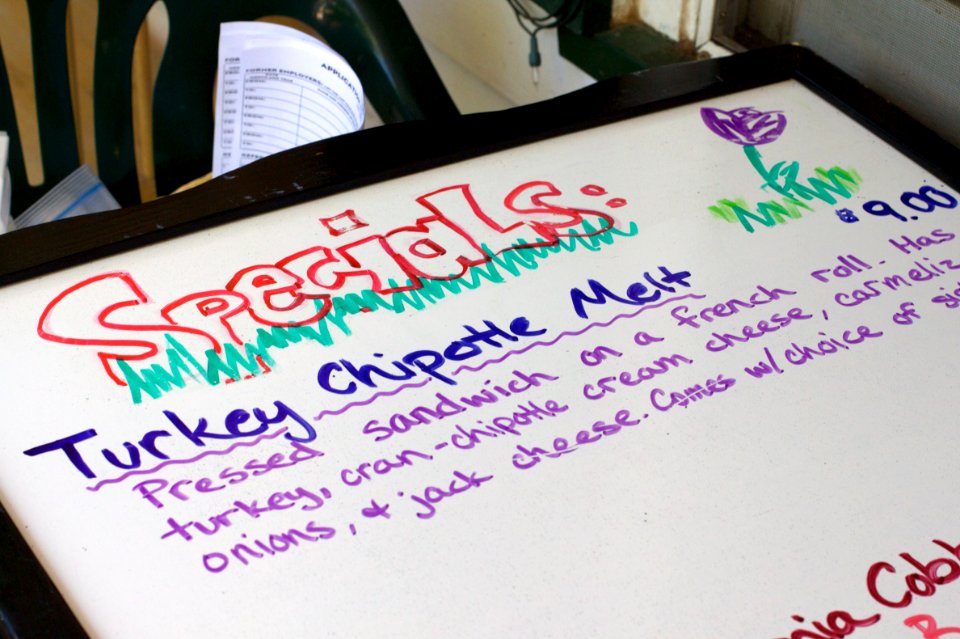 APPLICAT
FORMER EMPLOYERS
Specials:
$9.00
Turkey Chipotle Melt
Pressed sandwich on a french roll. Has
turkey, cran-chipotle cream cheese, carmeliz
onions, & jack cheese. Comes w/ choice of sid
nia Cobb